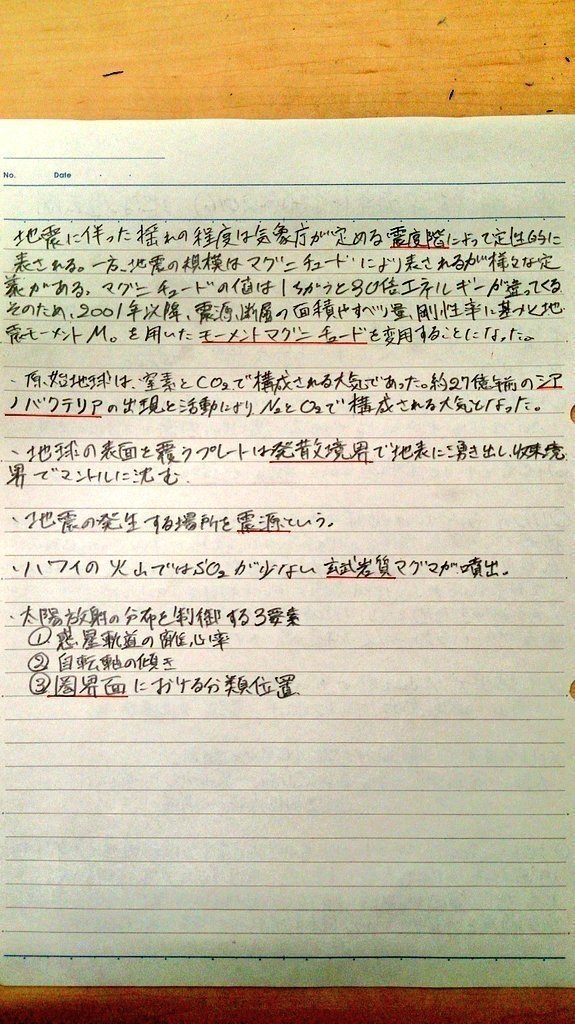 No.
Date
地震に伴った揺れの程度は気象庁が定める震度階によって定性的に
表される。一方、地震の規模はマグニチュードにより表されるが様々な定
義がある。マグニチュードの値は1ちがうと30倍エネルギーが違ってくる
そのため、2001年以降、震源断層の面積やすべり量、剛性率に基づく地
震モーメントM₀を用いたモーメントマグニチュードを変用することになった。
・原始地球は、窒素とCO₂で構成される大気であった。約27億年前のシア
ノバクテリアの出現と活動によりN₂とO₂で構成される大気となった。
・地球の表面を覆うプレートは発散境界で地表に湧き出し、収束境
界でマントルに沈む
・地震の発生する場所を震源という。
・ハワイの火山ではSO₂が少ない玄武岩質マグマが噴出。
・太陽放射の分布を制御する3要素
① 惑星軌道の離心率
② 自転軸の傾き
③ 圏界面における分類位置